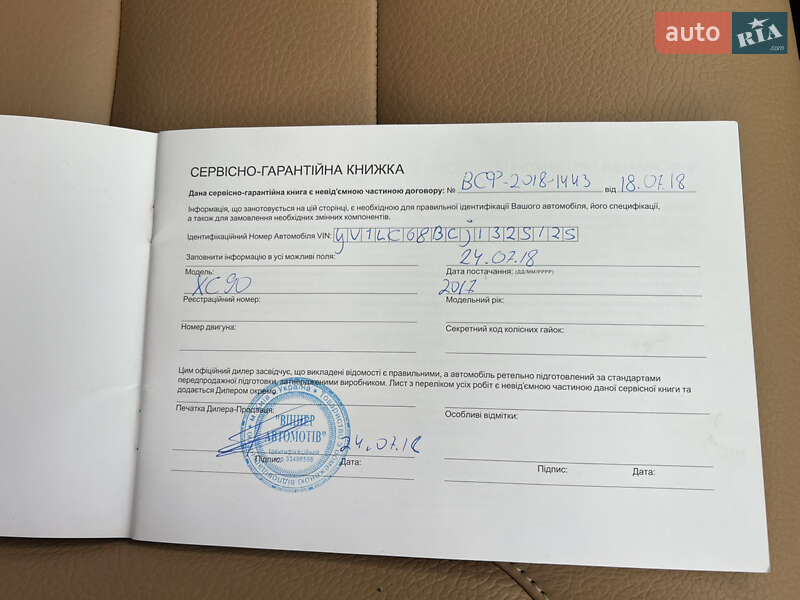 auto RIA .com
СЕРВІСНО-ГАРАНТІЙНА КНИЖКА
Дана сервісно-гарантійна книга є невід'ємною частиною договору: № ВСФ-2018-1443 від 18.07.18
Інформація, що занотовується на цій сторінці, є необхідною для правильної ідентифікації Вашого автомобіля, його специфікації,
а також для замовлення необхідних змінних компонентів.
Ідентифікаційний Номер Автомобіля VIN: YV1LC68BCJ1325125
Заповнити інформацію в усі можливі поля: 24.07.18
Модель: Дата постачання: (ДД/ММ/РРРР)
XC90 2017
Реєстраційний номер: Модельний рік:
Номер двигуна: Секретний код колісних гайок:
Цим офіційний дилер засвідчує, що викладені відомості є правильними, а автомобіль ретельно підготовлений за стандартами
передпродажної підготовки, затвердженими виробником. Лист з переліком усіх робіт є невід'ємною частиною даної сервісної книги та
додається Дилером окремо.
Печатка Дилера-Продавця: Особливі відмітки:
Україна
"ВІННЕР
АВТОМОТІВ"
ідентифікаційний
24.07.18
Підпис: Дата: Підпис: Дата: